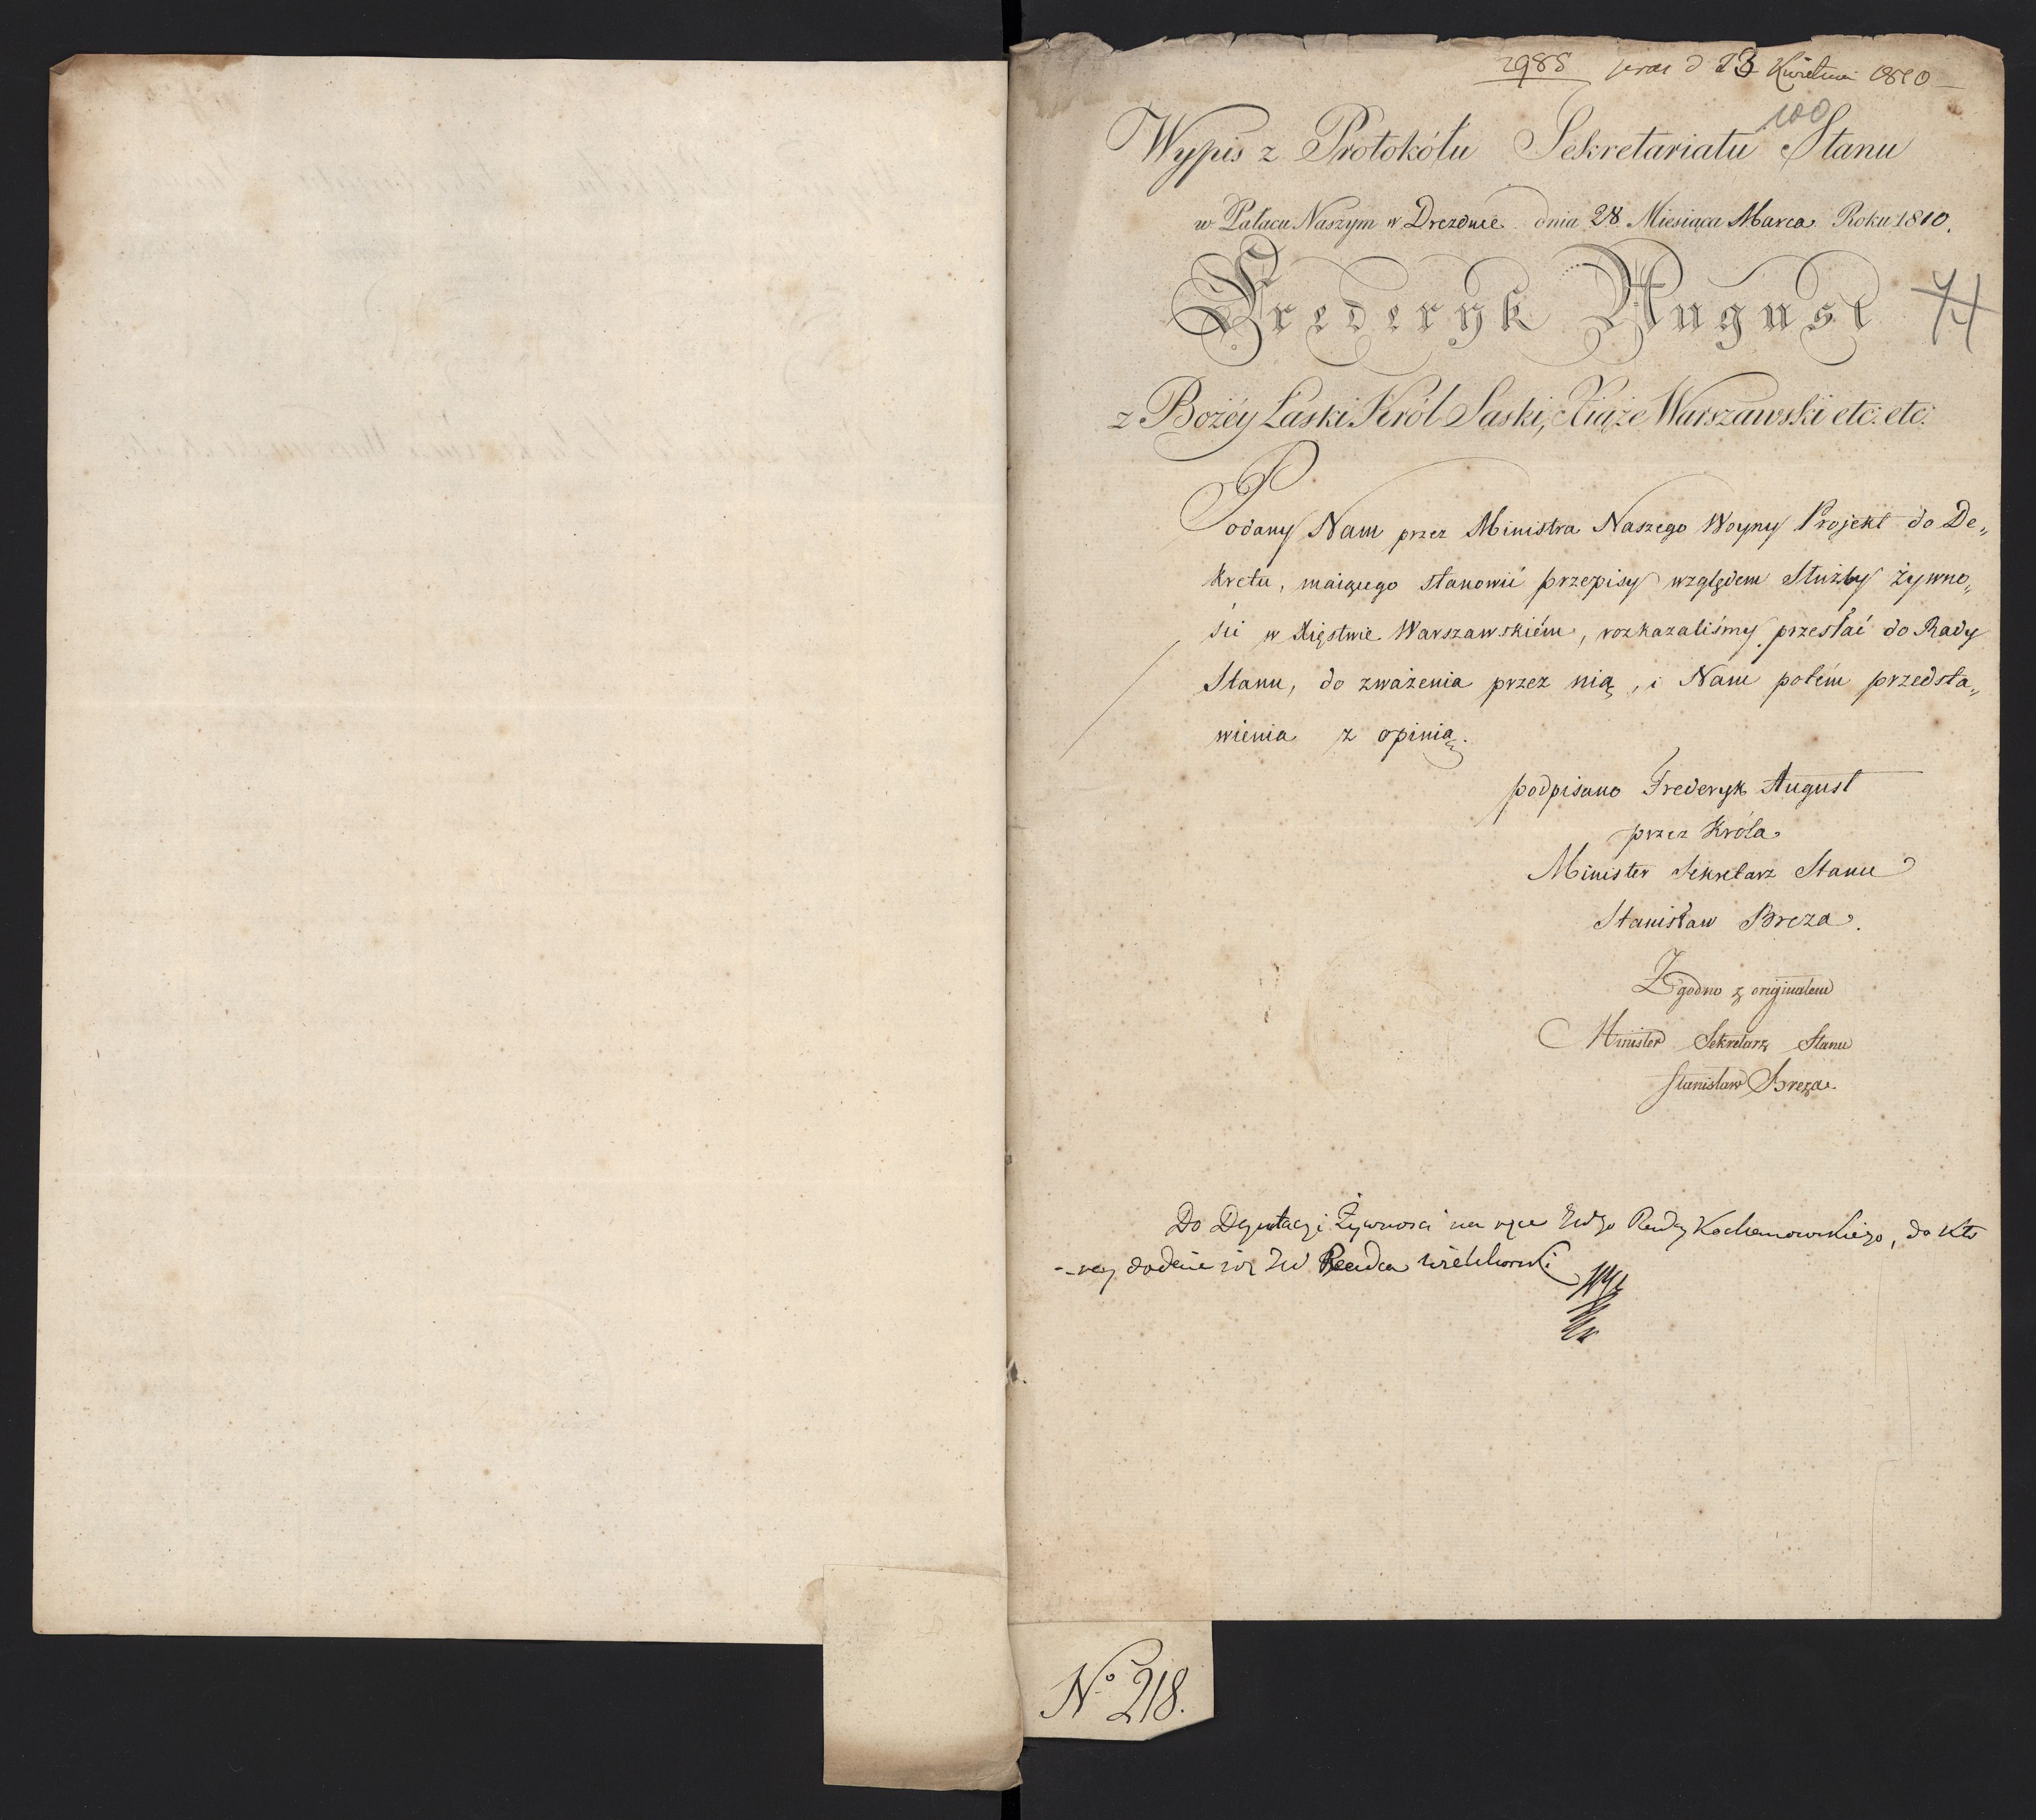 2985 d 23 Kwietnia 1810
100
Wypis z Protokółu Sekretariatu Stanu
w Pałacu Naszym w Dreznie dnia 28 Miesiąca Marca Roku 1810.
Frederyk August
z Bożéy Łaski Król Saski, Xiąże Warszawski etc: etc:
Podany Nam przez Ministra Naszego Woyny Projekt do De„
kretu, maiącego stanowić przepisy względem Służby żywno„
ści w Xięstwie Warszawskiém, rozkazaliśmy przesłać do Rady
Stanu, do zważenia przez nią, i Nam potém przedsta„
wienia z opinią.
podpisano Frederyk August
przez Króla
Minister Sekretarz Stanu
Stanisław Breza.
Zgodno z originałem
Minister Sekretarz Stanu
Stanisław Breza.
Do Deputacyi Żywności na ręce Radcy Kochanowskiego, do któ
-rey dodaie się JW Radca Wielhorski
No 218.